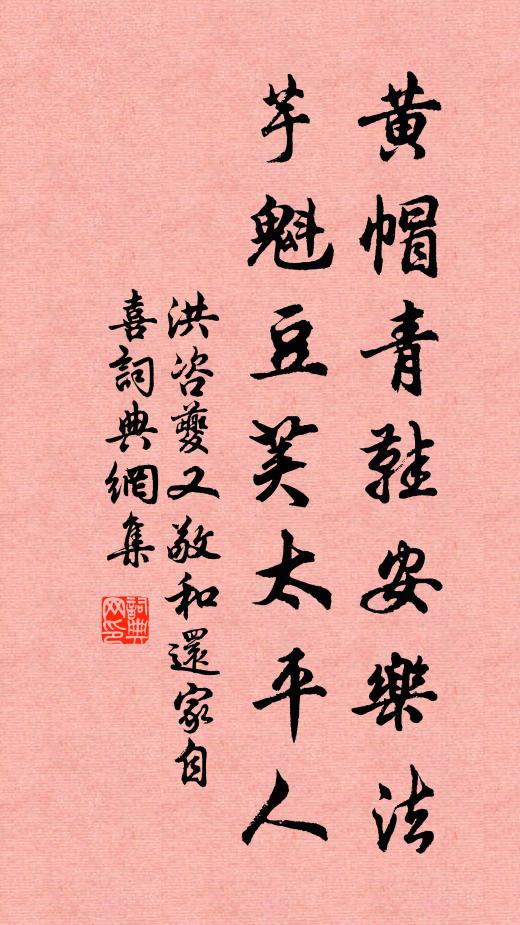 黄帽青鞋安樂法
芋魁豆羮太平人
洪咨夔又敬和還家自
喜詞典網集
詞典
网印